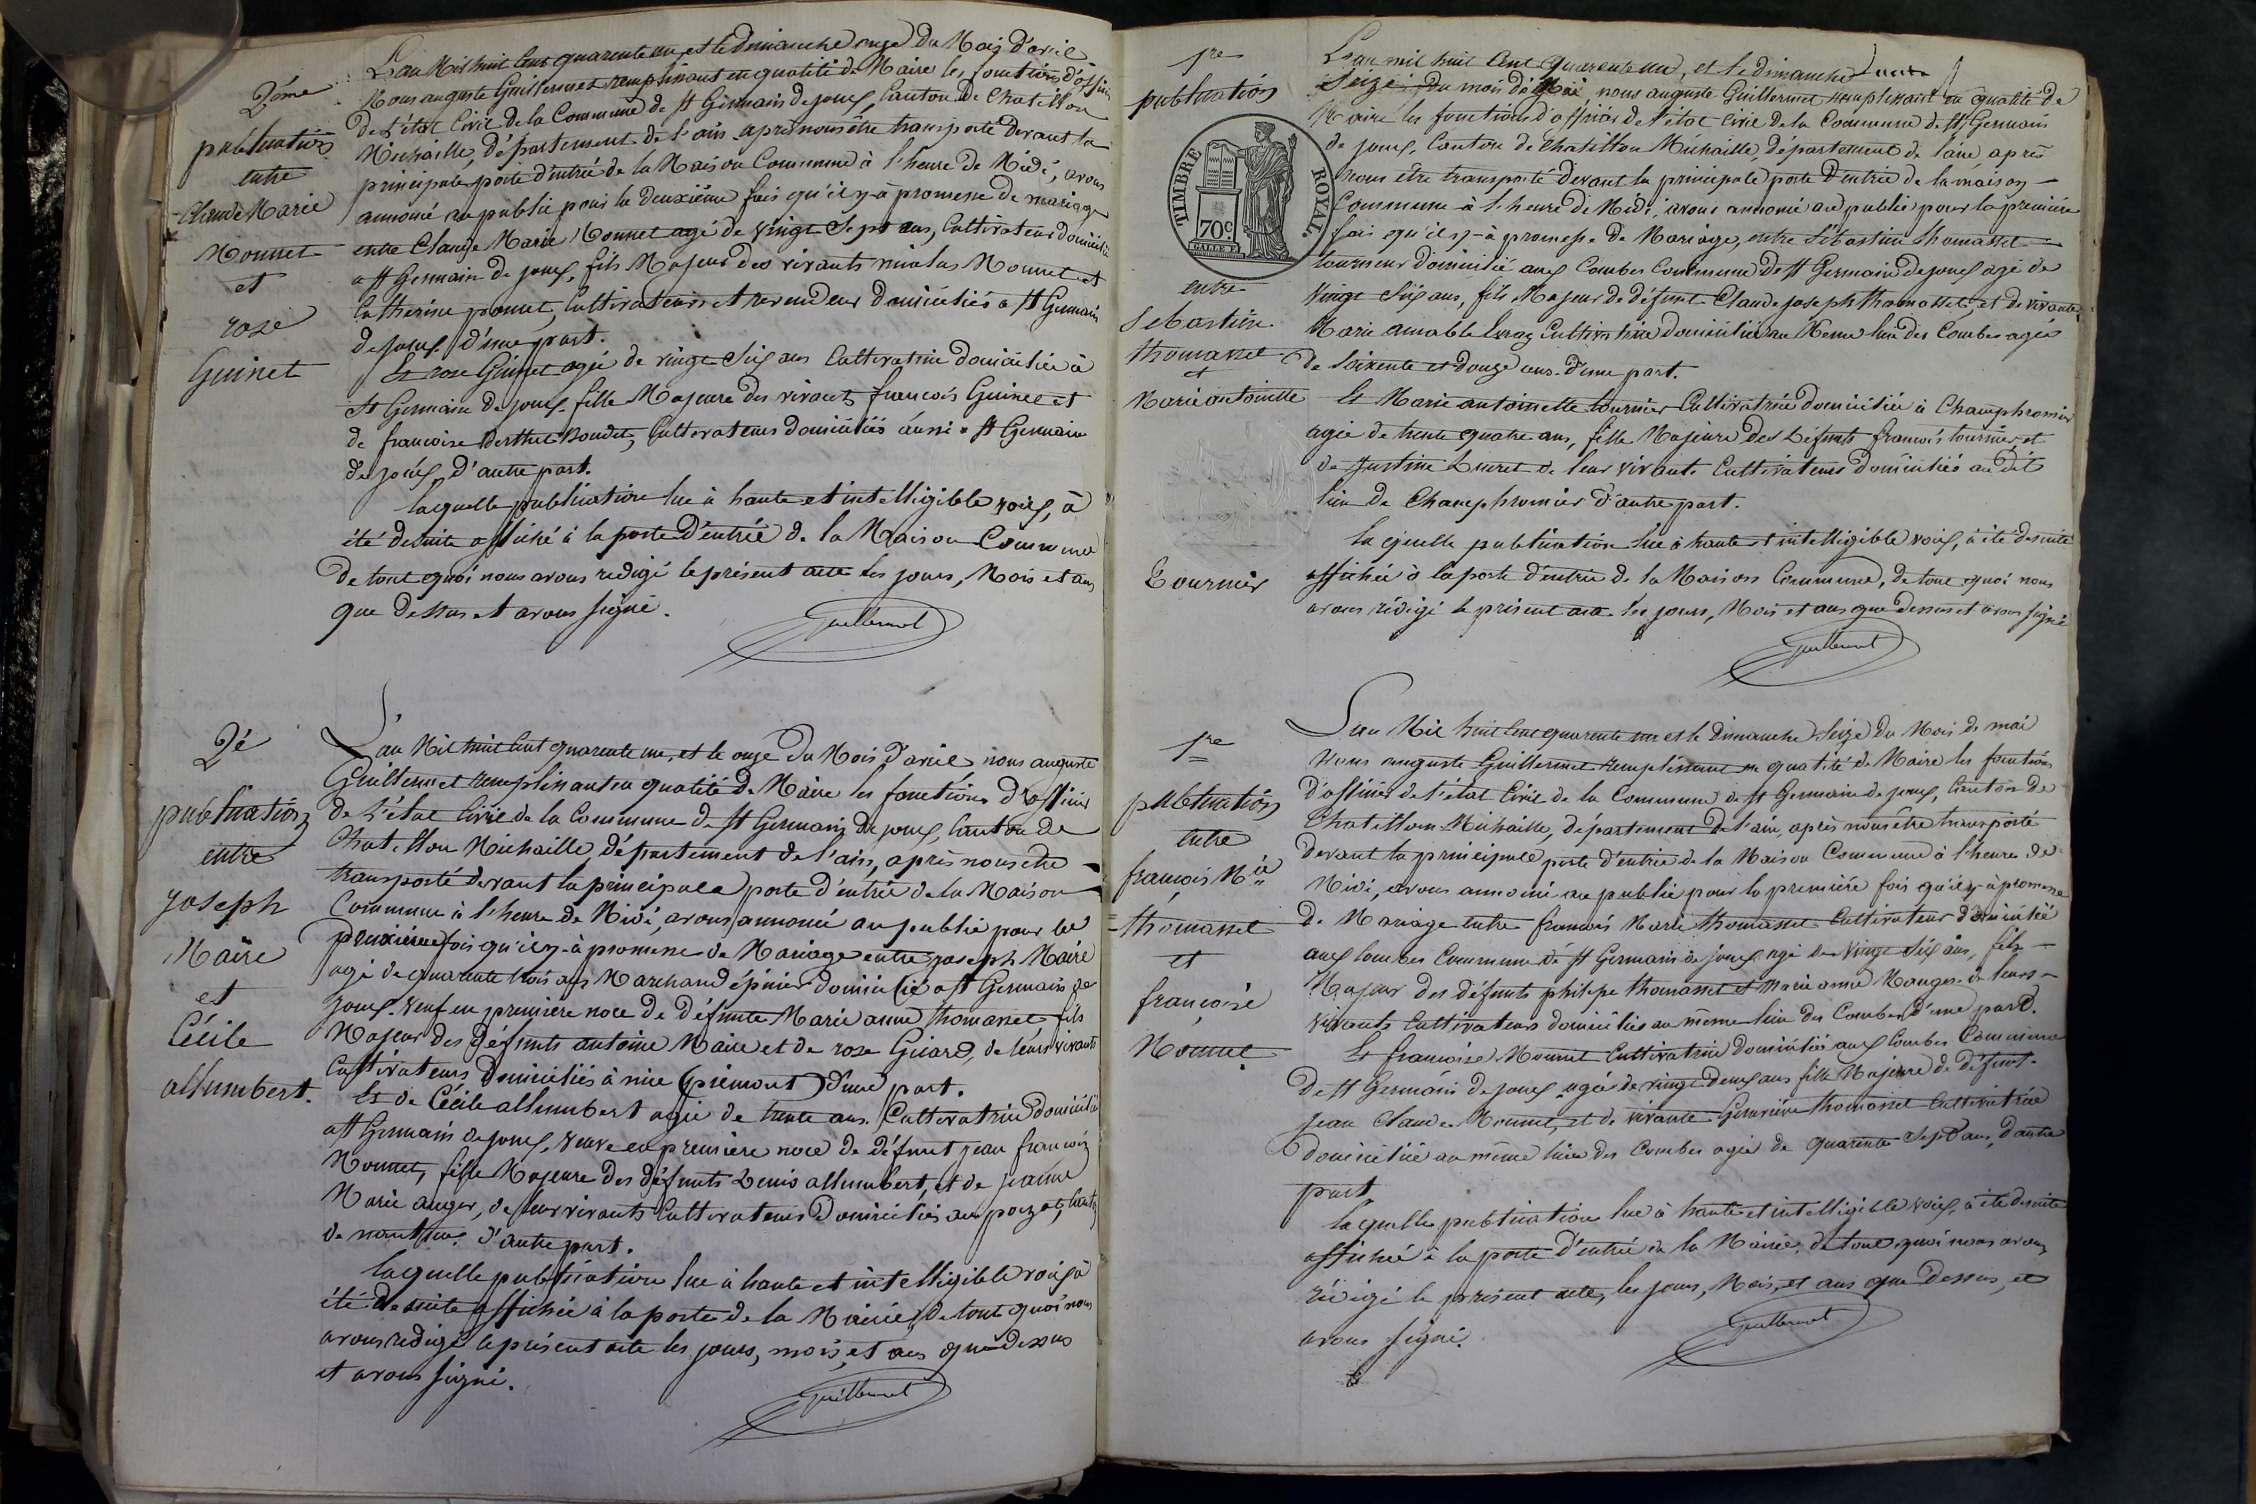 2éme
publication
entre
Claude Marie
Monnet
et
rose
Guinet
L'an Mil huit cent quarente un, et le dimanche onze du Mois d'avril
Nous auguste Guillermet remplissant en qualité de Maire les fonctions d'officier
de l'état Civil de la Commune de St Germain de joux, Canton de Chatillon
Michaille, département de l'ain, après nous être transporté devant la
principale porte d'entrée de la Maison Commune à l'heure de Midi, avons
annoncé au public pour la deuxième fois qu'il y-à promesse de mariage
entre Claude Marie Monnet agé de vingt Sept ans, Cultivateur domicilié
a St Germain de joux, fils Majeur des vivants nicolas Monnet et
Catherine ponnet, Cultivateurs et revendeur domiciliés a St Germain
de joux d'une part.
Et rose Guinet agée de vingt Six ans Cultivatrice domiciliée à
St Germain de joux fille Majeure des vivants françois Guinet et
de francoise Berthet Bondet, Cultivateurs domiciliés aussi a St Germain
de joux, d'autre part.
laquelle publication lue à haute et intelligible voix, à
été desuite affiché à la porte d'entrée de la Maison Commune
de tout quoi nous avons redigé le présent acte les jours, Mois et ans
que dessus et avons signé.
Guillermet
2é
publication
entre
joseph
Maire
et
Cécile
allumbert.
L'an Mil huit cent quarente un, et le onze du Mois d'avril, nous auguste
Guillermet remplissant en qualité de Maire les fonctions d'officier
de l'état Civil de la Commune de St Germain de joux, Canton de
Chatillon Michaille, département de l'ain, après nous etre
transporté devant la principale porte d'entrée de la Maison
Commune à l'heure de Midi, avons annoncé au public pour la
deuxième fois qu'il y-à promesse de Mariage entre joseph Maire
agé de quarente trois ans Marchand épicier domicilié a St Germain de
joux, veuf en première noce de défunte Marie anne thomasset, fils
Majeur des défunts antoine Maire et de rose Girard, de leurs vivants
Cultivateurs domiciliés à nice (piémont) d'une part.
Et de Cécile allumbert agée de trente ans Cultivatrice domiciliée
a St Germain de joux, veuve en première noce de défunt jean françois
Monnet, fille Majeure des défunts Denis allumbert, et de jeanne
Marie auger, de leur vivants Cultivateurs domiciliés au poizat, Canton
de nantua d'autre part.
laquelle publication lue à haute et intelligible voix à
été desuite affichée à la porte de la Mairie, de tout quoi nous
avons redigé le présent acte les jours, mois, et ans que dessus
et avons signé.
Guillermet
1re
publication
TIMBRE ROYAL.
70c
entre
Sebastien
thomasset
et
Marie antoinette
Tournier
L'an mil huit Cent quarente un, et le dimanche
Seize du mois de Mai, nous auguste Guillermet remplissant en qualité de
Maire les fonctions d'officier de l'état Civil de la Commune de St Germain
de joux, Canton de Chatillon Michaille, département de l'ain, après
nous être transporté devant la principale porte d'entrée de la maison
Commune à l'heure de Midi, avons annoncé au public pour la première
fois qu'il y-à promesse de Mariage, entre Sébastien thomasset
tourneur domicilié aux Combes Commune de St Germain de joux agé de
vingt Six ans, fils Majeur de défunt Claude joseph thomasset, et de vivante
Marie amable Cultivatrice domiciliée au Même lieu des Combes agée
de Soixente et douze ans d'une part.
Et Marie antoinette tournier Cultivatrice domiciliée à Champfromier
agée de trente quatre ans, fille Majeure des Défunts francois tournier et
de Justine Ducret de leur vivant Cultivateurs domiciliés au dit
lieu de Champfromier d'autre part.
La quelle publication lue à haute et intelligible voix, à été desuite
affichée à la porte d'entrée de la Maison Commune, de tout quoi nous
avons rédigé le présent acte les jours, Mois et ans que dessus et avons signé
Guillermet
1re
publication
entre
françois Mie
thomasset
et
françoise
Monnet
L'an Mil huit Cent quarente un et le dimanche Seize du Mois de mai
Nous auguste Guillermet remplissant en qualité de Maire les fonctions
d'officier de l'état Civil de la Commune de St Germain de joux, Canton de
Chatillon Michaille, département de l'ain, après nous être transporté
devant la principale porte d'entrée de la Maison Commune à l'heure de
Midi, avons annoncé au public pour la première fois qu'il y-à promesse
de Mariage entre francois Marie thomasset Cultivateur domicilié
aux Combes Commune de St Germain de joux agé de vingt Six ans, fils
Majeur des défunts philipe thomasset et Marie anne Monger de leurs
vivants Cultivateurs domiciliés au même lieu des Combes d'une part.
Et francoise Monnet Cultivatrice domiciliée aux Combes Commune
de St Germain de joux agée de vingt deux ans fille Majeure de défunt
jean Claude Monnet, et de vivante Genevieve thomasset Cultivatrice
domiciliée au même lieu des Combes agée de quarente Sept ans, d'autre
part
laquelle publication lue à haute et intelligible voix, à été desuite
affichée à la porte d'entrée de la Mairie, de tout quoi nous avons
rédigé le présent acte, les jours, Mois, et ans que dessus, et
avons signé.
Guillermet